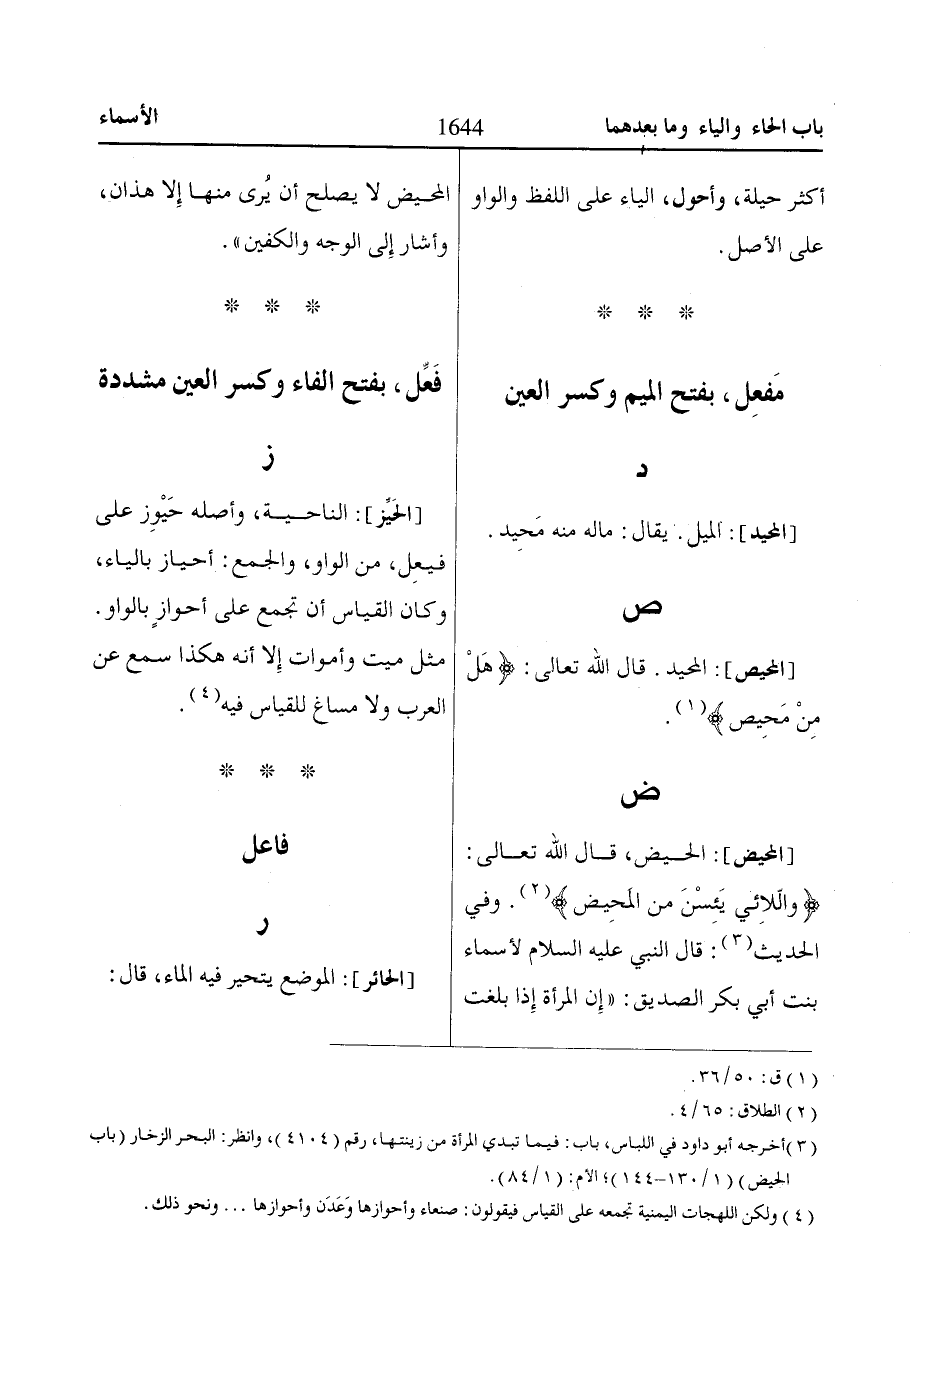 باب الحاء والياء وما بعدهما
1644
الأسماء
أكثر حيلة، وأحول، الياء على اللفظ والواو
على الأصل.
* * *
مَفعِل، بفتح الميم وكسر العين
د
[المحيد]: الميل. يقال: ماله منه مَحِيد.
ص
[المحيص]: المحيد. قال الله تعالى: ﴿هَلْ
مِنْ مَحِيص﴾(١).
ض
[المحيض]: الحيض، قال الله تعالى:
﴿واللّائي يَئِسْنَ من المَحيض﴾(٢). وفي
الحديث(٣): قال النبي عليه السلام لأسماء
بنت أبي بكر الصديق: «إن المرأة إذا بلغت
المحيض لا يصلح أن يُرى منها إلا هذان،
وأشار إلى الوجه والكفين».
* * *
فَعِّل، بفتح الفاء وكسر العين مشددة
ز
[الحَيِّز]: الناحية، وأصله حَيْوِز على
فيعِل، من الواو، والجمع: أحياز بالياء،
وكان القياس أن تجمع على أحوازٍ بالواو.
مثل ميت وأموات إلا أنه هكذا سمع عن
العرب ولا مساغ للقياس فيه(٤).
* * *
فاعل
ر
[الحائر]: الموضع يتحير فيه الماء، قال:
(١) ق: ٣٦/٥٠.
(٢) الطلاق: ٤/٦٥.
(٣) أخرجه أبو داود في اللباس، باب: فيما تبدي المرأة من زينتها، رقم (٤١٠٤)، وانظر: البحر الزخار (باب
الحيض) (١/١٣٠-١٤٤)؛ الأم: (٨٤/١).
(٤) ولكن اللهجات اليمنية تجمعه على القياس فيقولون: صنعاء وأحوازها وَعَدَن وأحوازها ... ونحو ذلك.